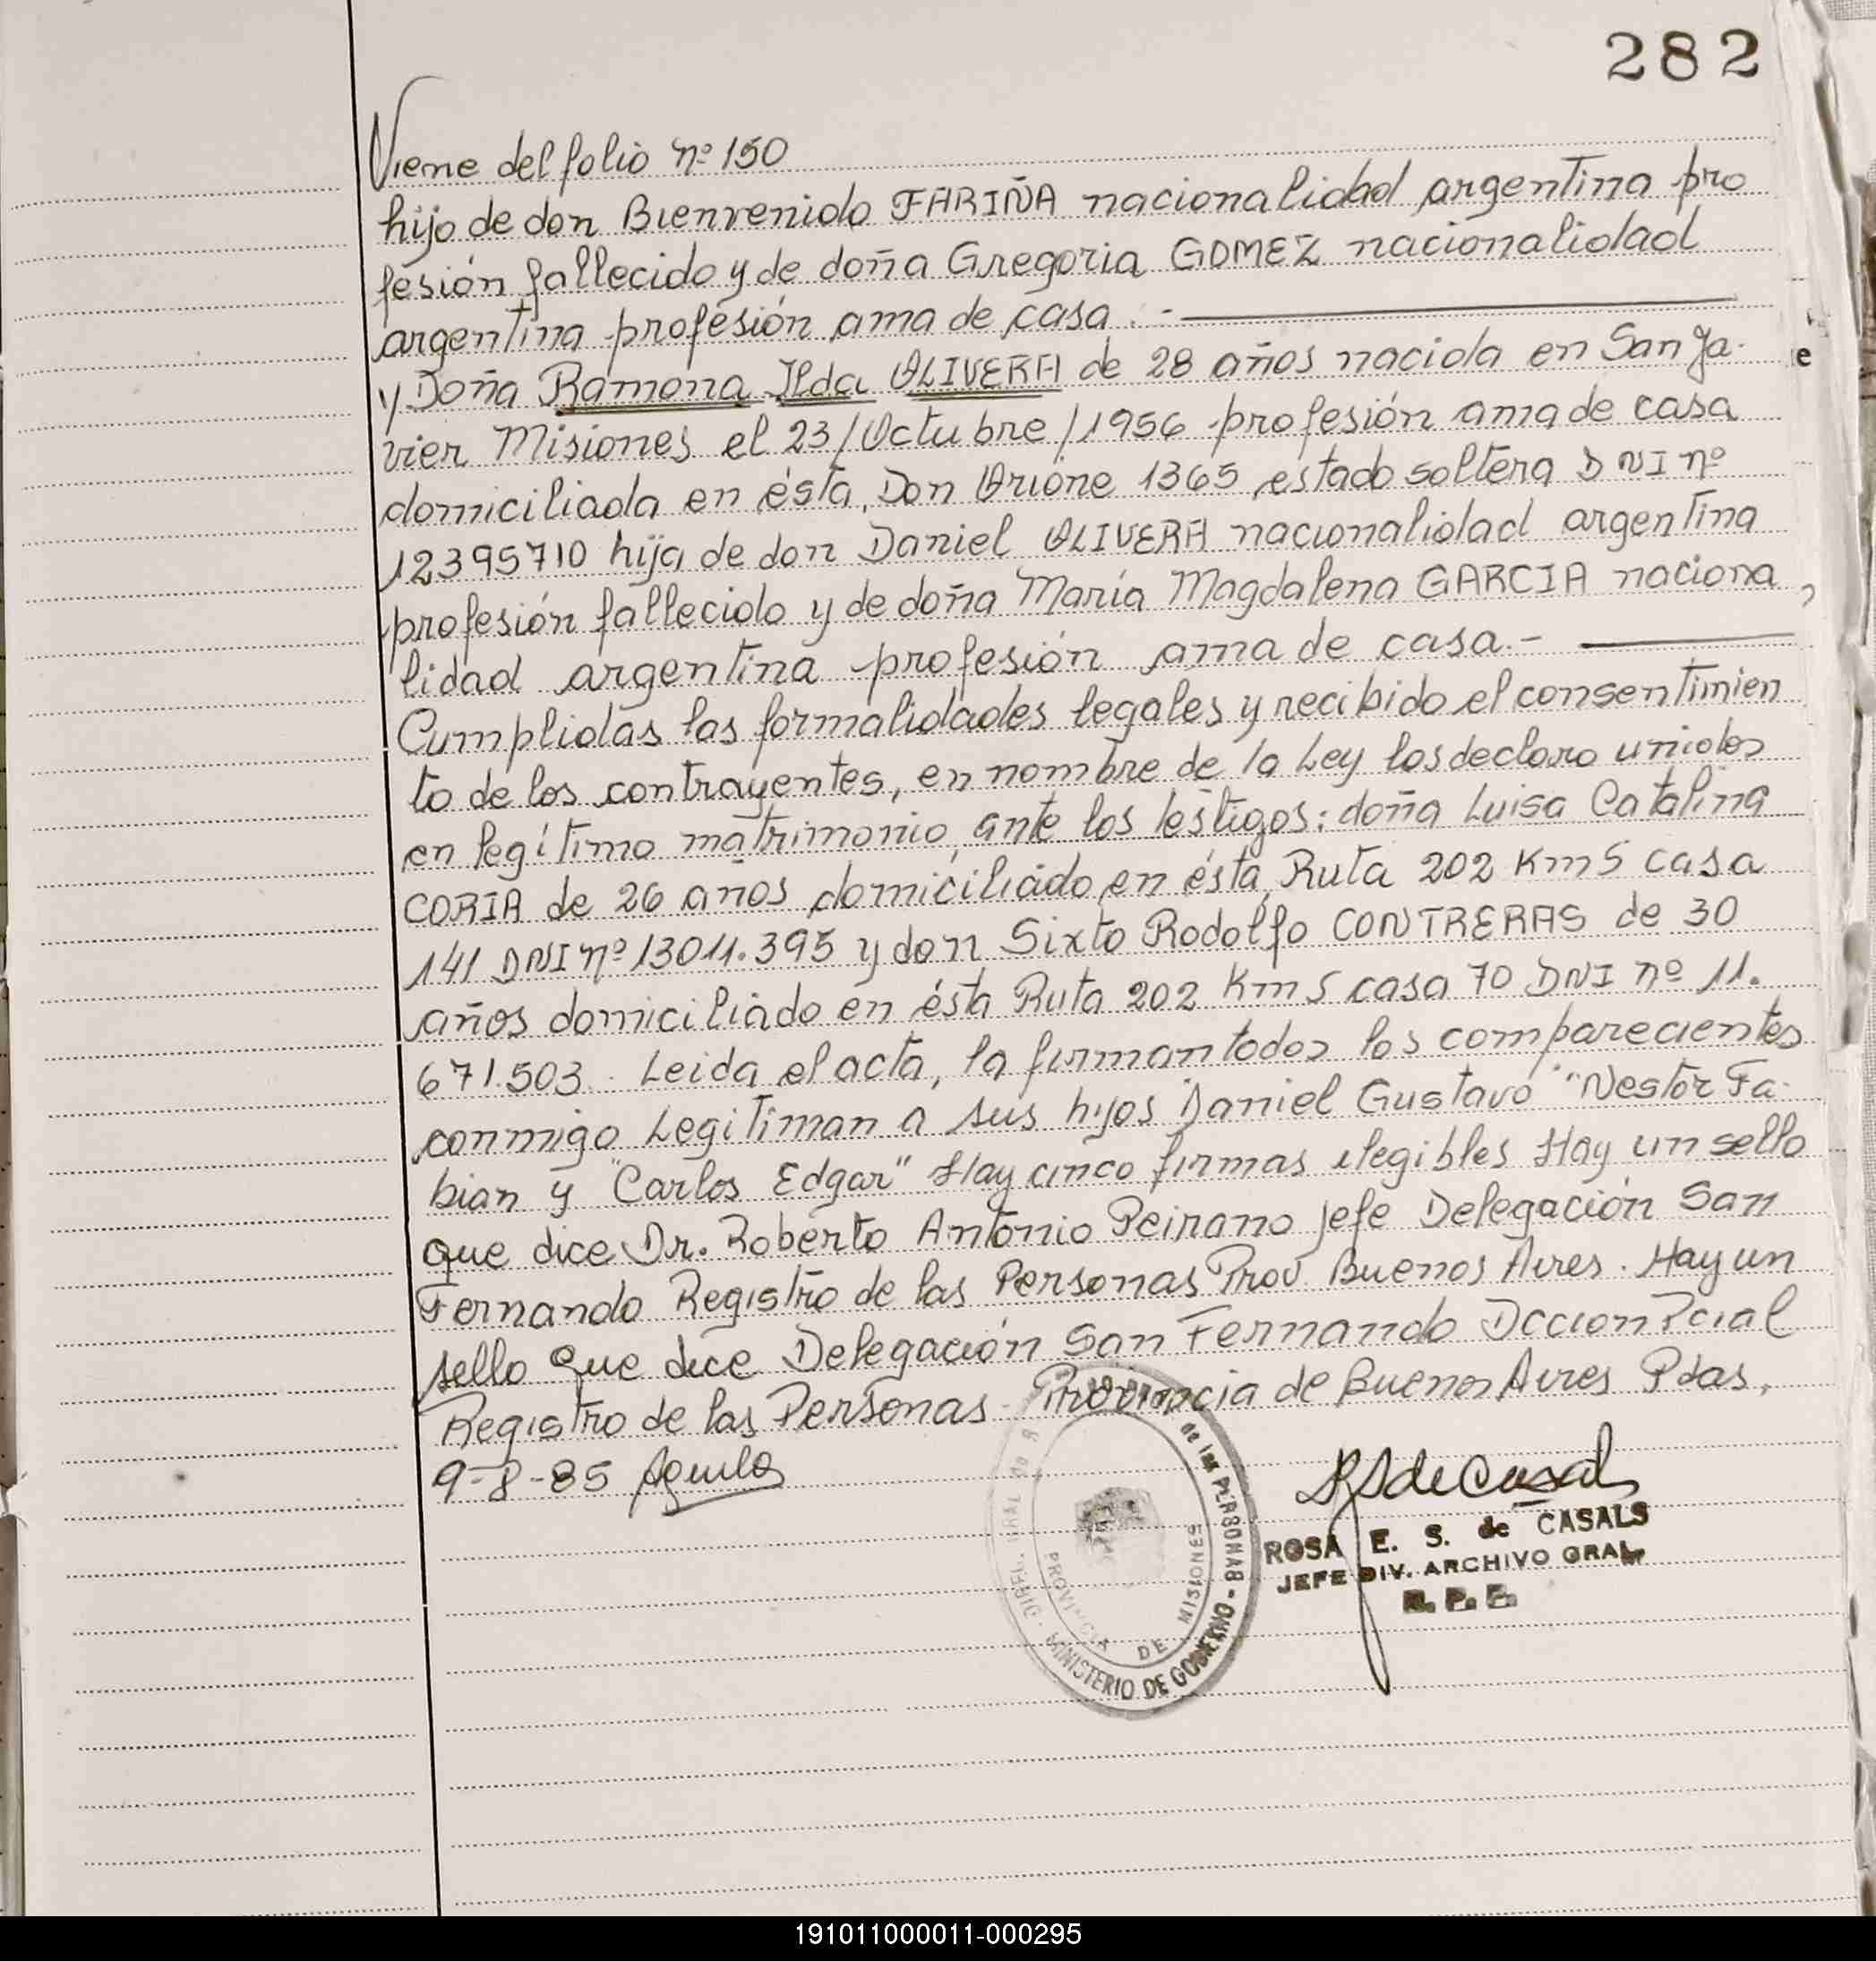 282
Viene del folio nº 150
hijo de don Bienvenido FARIÑA nacionalidad argentina pro
fesión fallecido y de doña Gregoria GOMEZ nacionalidad
argentina profesión ama de casa . -
y Doña Ramona Ilda OLIVERA de 28 años nacida en San Ja-
vier Misiones el 23/Octubre/1956 profesión ama de casa
domiciliada en ésta, Don Orione 1365 estado soltera DNI nº
12395710 hija de don Daniel OLIVERA nacionalidad argentina
profesión fallecido y de doña María Magdalena GARCIA naciona
lidad argentina profesión ama de casa.-
Cumplidas las formalidades legales y recibido el consentimien
to de los contrayentes, en nombre de la Ley los declaro unidos
en legítimo matrimonio, ante los testigos: doña Luisa Catalina
CORIA de 26 años domiciliado en ésta, Ruta 202 Km 5 casa
141 DNI nº 13011.395 y don Sixto Rodolfo CONTRERAS de 30
años domiciliado en ésta Ruta 202 Km 5 casa 70 DNI nº 11.
671.503. Leida el acta, la firman todos los comparecientes
conmigo Legitiman a sus hijos Daniel Gustavo "Nestor Fa-
bian y "Carlos Edgar" Hay cinco firmas ilegibles Hay un sello
que dice Dr. Roberto Antonio Peirano Jefe Delegación San
Fernando Registro de las Personas Prov. Buenos Aires. Hay un
sello que dice Delegación San Fernando Dccion Pcial
Registro de las Personas - Provincia de Buenos Aires Pdas,
9-8-85
de las PERSONAS - MINISTERIO DE GOBIERNO
PROVINCIA DE MISIONES
ROSA E. S. de CASALS
JEFE DIV. ARCHIVO GRAL.
R. P. P.
191011000011-000295